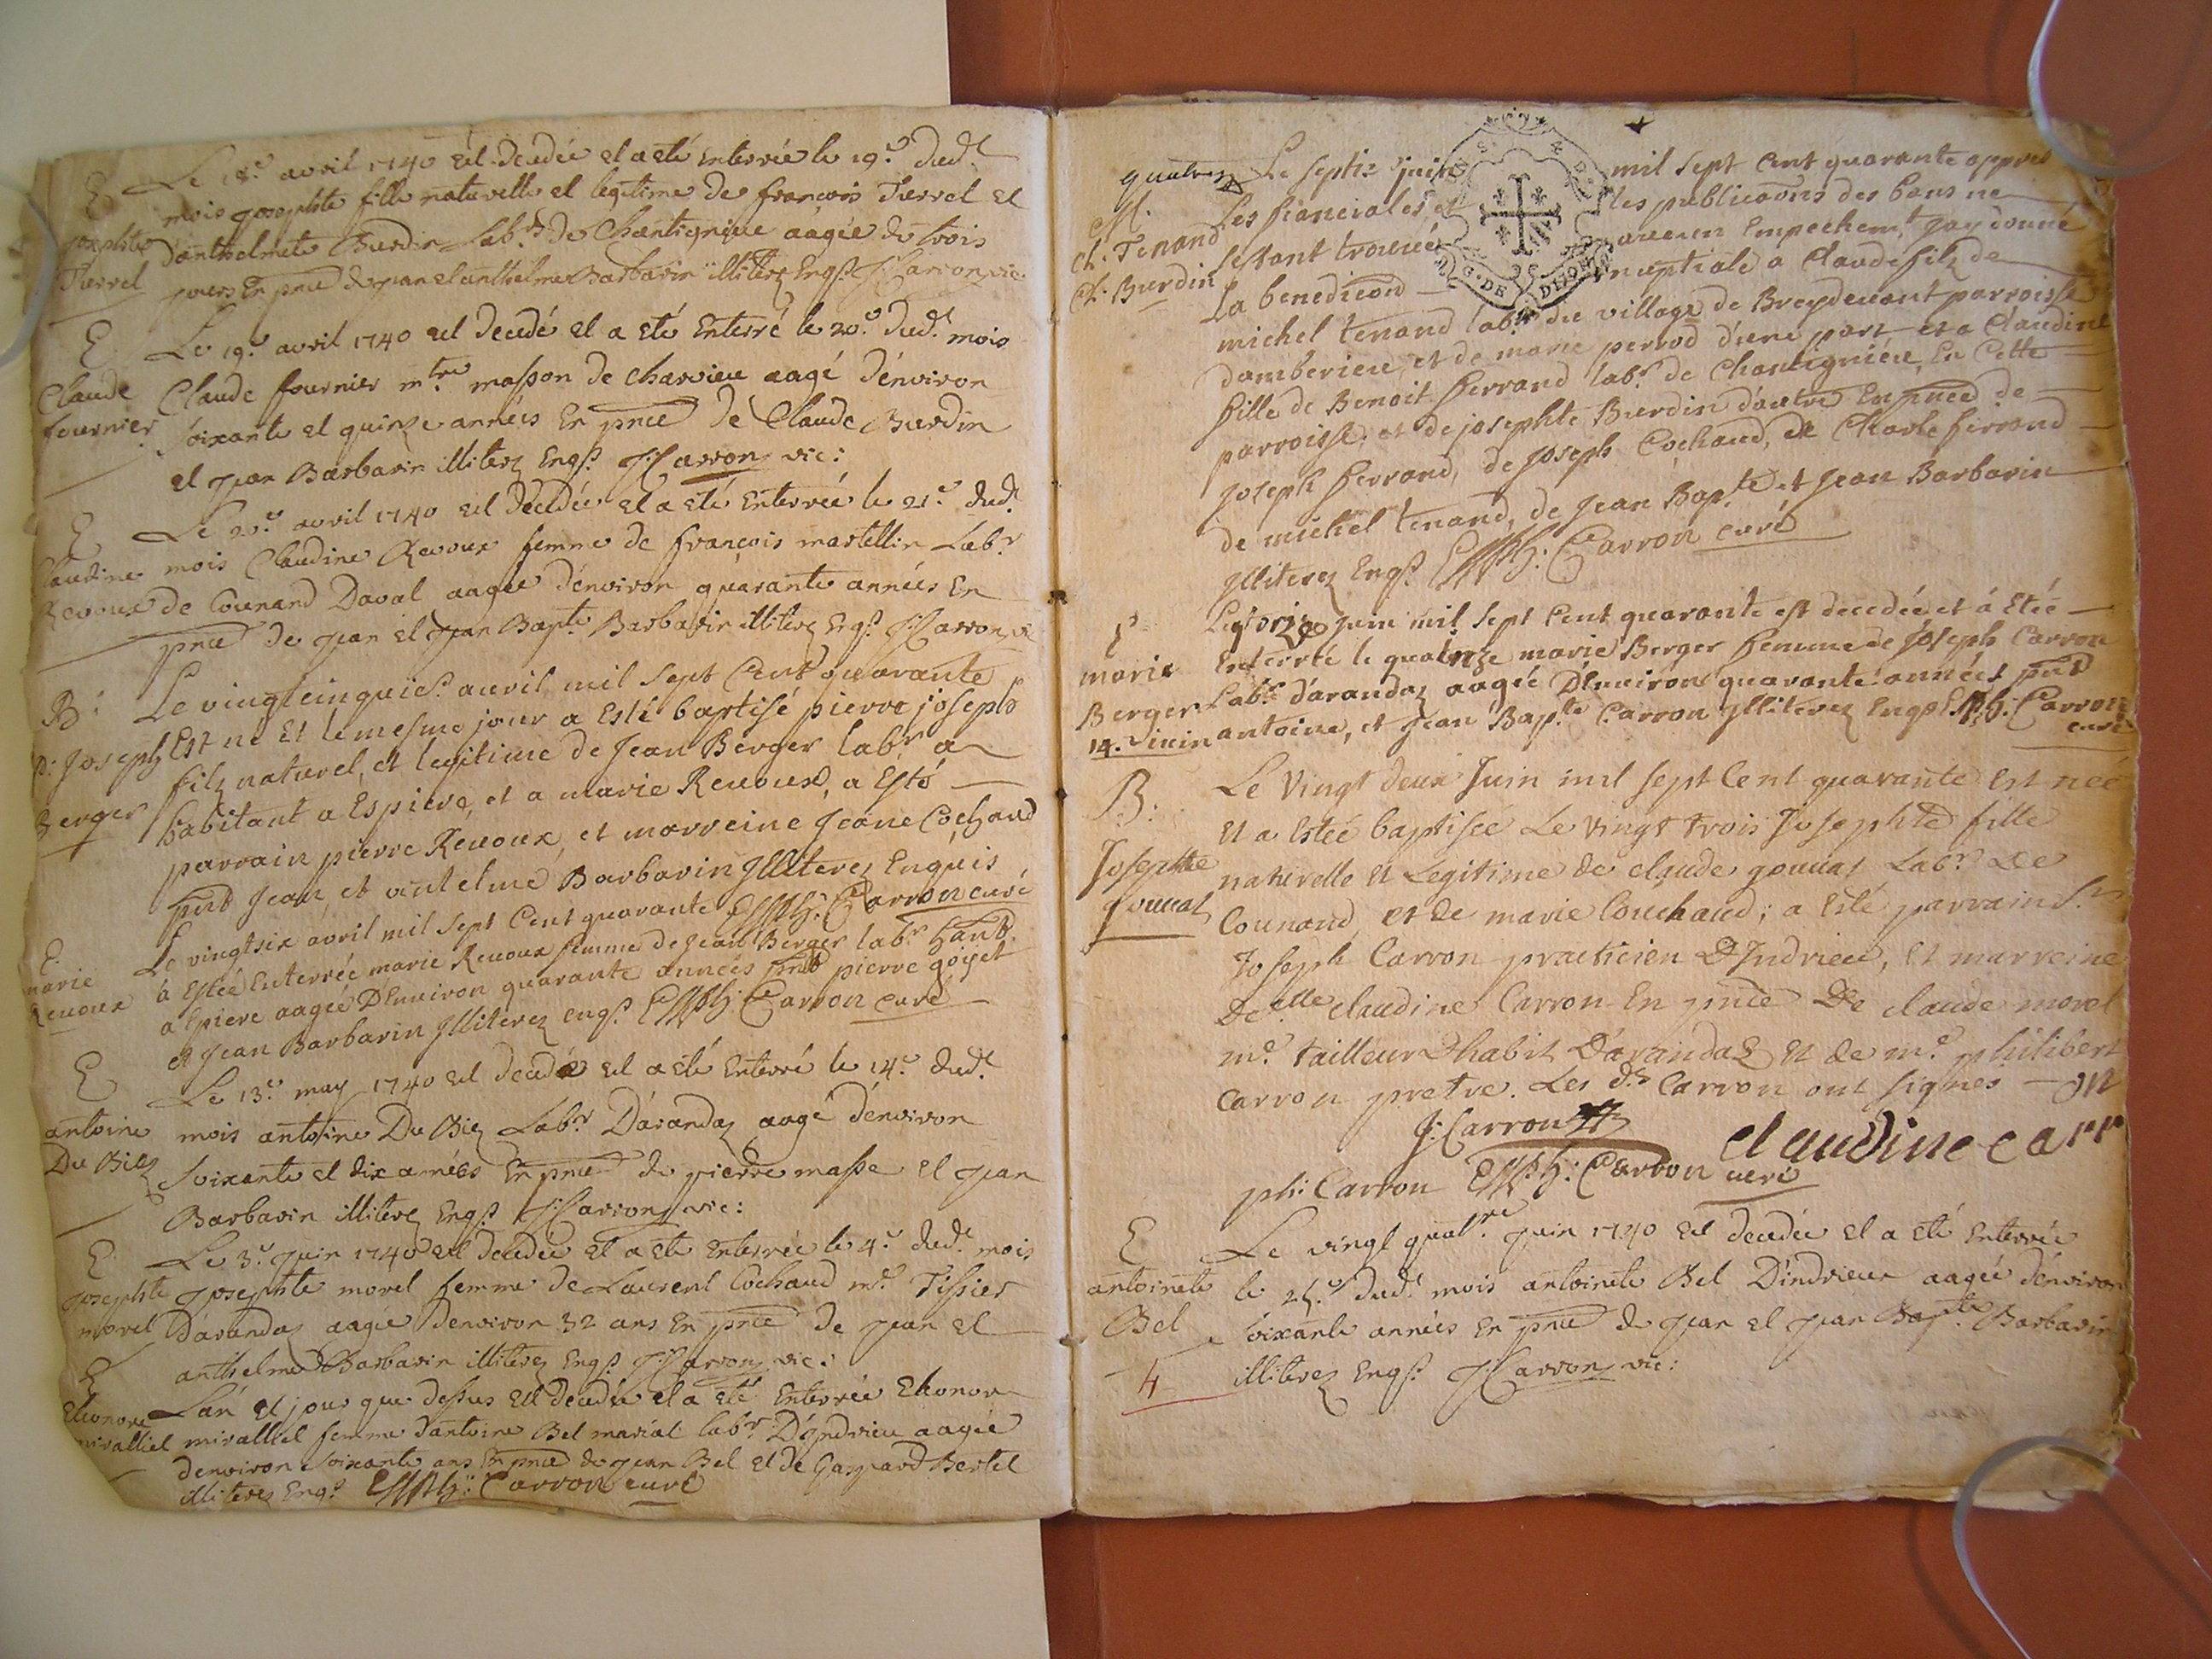 E Le 18.e avril 1740 est decedée et a eté enterrée le 19.e dud.t
mois josephte fille naturelle et legitime de francois Tierrel et
josephte d'anthelmete Burdin Lab.rs de Chantigniere aagée de trois
Tierrel jours En pnce de jean et anthelme Barbarin illiterez Enq.s J: Carron vic:
E Le 19.e avril 1740 est decedé et a eté Enterré le 20.e dud.t mois
Claude Claude fournier m.tre masson de charvieu aagé d'environ
fournier soixante et quinze années En pnce de Claude Burdin
et jean Barbarin illiterez Enq.s J: Carron vic:
E Le 20.e avril 1740 est decedée et a eté Enterrée le 21.e dud.t
Claudine mois Claudine Revoux femme de françois martellin Lab.r
Revoux de Counand Daval aagée d'environ quarante années En
pnce de jean et jean Bapt.e Barbarin illiterez Enq.s J: Carron
B: Le vingt cinquie.e avril mil sept Cent quarante
p: Joseph Est né Et le mesme jour a Esté baptisé pierre joseph
filz naturel, et legitime de Jean Berger lab.r a
Berger habitant a Espiere, et a marie Revoux, a Esté
parrain pierre Revoux, et marreine Jeane Cochaud
pnt Jean, et antelme Barbarin Illiterez Enquis
Carron curé
E. Le vingt six avril mil sept Cent quarante
marie à Estée Enterrée marie Revoux femme de Jean Berger lab.r hant
Revoux a Epiere aagée D'Environ quarante années pnt pierre goyet
et Jean Barbarin Illiterez enq.s Carron curé
E Le 13.e may 1740 est decedé et a eté Enterré le 14.e dud.t
antoine mois antoine Du Biez Lab.r D'arandaz aagé d'environ
Du Biez soixante et dix années En pnce de pierre masse et jean
Barbarin illiterez Enq.s J: Carron vic:
E Le 3.e juin 1740 est decedée et a eté enterrée le 4.e dud.t mois
josephte josephte morel femme de Laurent Cochaud m.e Tissier
morel D'arandaz aagée d'environ 32 ans En pnce de jean et
anthelme Barbarin illiterez Enq.s J: Carron vic:
E L'an et jour que dessus est decedée et a eté Enterrée Elionor
Elionore miralliel femme d'antoine Bel marial lab.r D'jndrieu aagée
miralliel d'environ soixante ans En pnce de jean Bel et de Gaspard Bertet
illiterez Enq.s Carron curé
quatorze Le septie juin mil sept Cent quarante appres
M. Les fiancialles, et les publicaons des bans ne
cl. Tenand s'estant trouvée aucun Empechem.t jay donné
cl. Burdin la benediction nuptiale a Claude filz de
michel tenand lab.r du village de Breydevant parroisse
damberieu, et de marie perrod d'une part et a Claudine
fille de Benoit ferrand lab.r de Chantigniére, En Cette
parroisse, et de josephte Burdin d'autre En pnce de
joseph ferrand, de Joseph Cochaud, de Charle ferrand
de michel tenand, de Jean Bap.te et Jean Barbarin
Illiterez Enq.s Carron curé
E Le treize Juin mil sept Cent quarante est decedée et à Etée
marie Enterrée le quatorze marie Berger femme de Joseph Carron
Berger Lab.r d'arandaz aagée D'Environ quarante années pnt
14. Juin antoine, et Jean Bap.te Carron Illiterez Enq.s Carron
curé
B: Le Vingt deux Juin mil sept Cent quarante est née
et a Estée baptisée Le vingt trois Josephte fille
Josephte naturelle et Legitime de claude gouvat Lab.r de
gouvat Counand, et de marie Couchaud; a Esté parrain S.r
Joseph Carron practicien D'Indrieu, et marreine
De.elle claudine Carron En pnce De claude morel
m.e tailleur d'habit D'arandaz et de m.e philibert
Carron pretre. Les d.ts Carron ont signés
J: Carron claudine carron
ph: Carron Carron curé
E Le vingt quat.re juin 1740 est decedée et a eté Enterrée
antoinete le 25.e dud.t mois antoinete Bel D'indrieux aagée d'environ
Bel soixante années En pnce de jean et jean Bap.te Barbarin
4 illiterez Enq.s J: Carron vic: